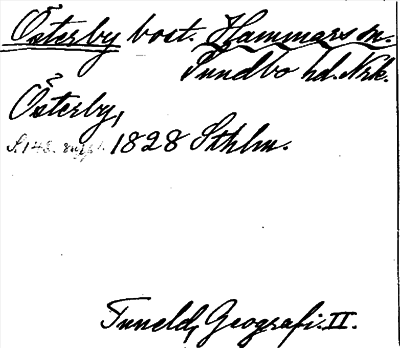 Österby bost. Hammars sn.
Sundbo hd. Nrk.
Österby,
S. 148. 1828 Sthlm.
Tuneld, Geografi. II.